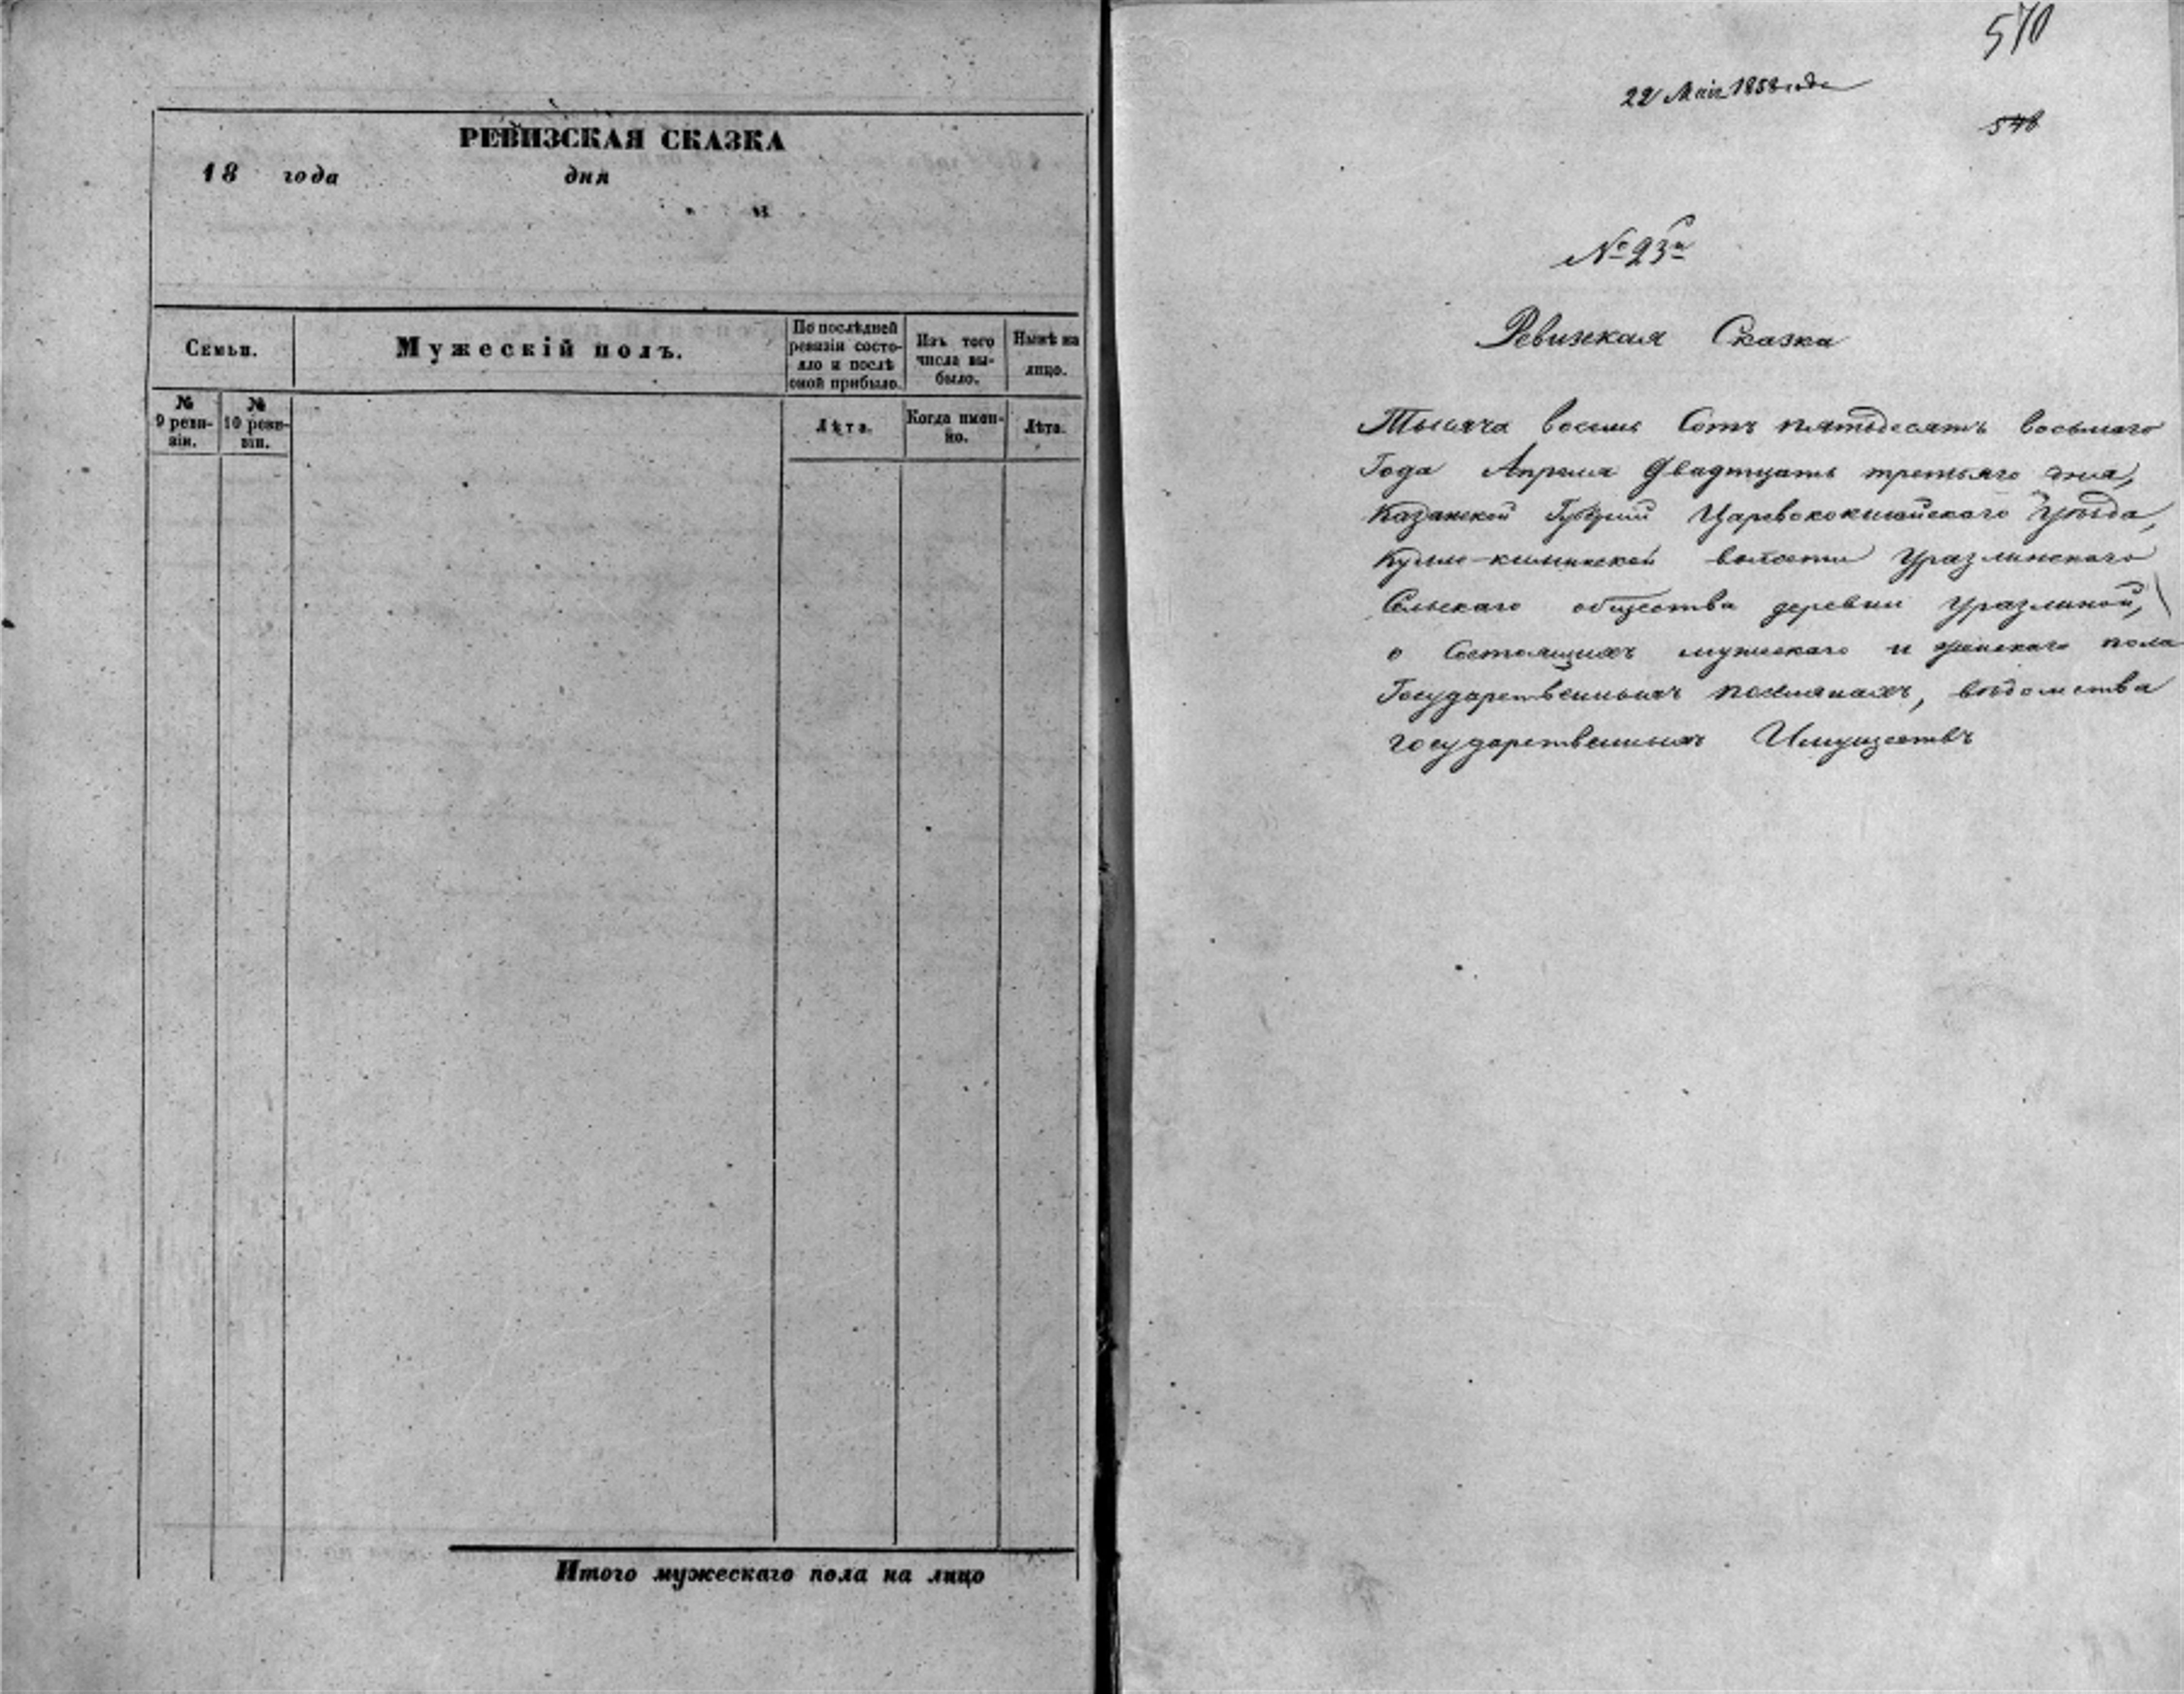 РЕВИЗСКАЯ СКАЗКА
18 года дня
Семьи.
Мужескій полъ.
По послѣдней ревизіи состояло и послѣ оной прибыло.
Изъ того числа выбыло.
Нынѣ на лицо.
№ 9 ревизіи.
№ 10 ревизіи.
Лѣта.
Когда именно.
Лѣта.
Итого мужескаго пола на лицо
570
22 Маія 1858 года
548
№ 23й
Ревизская Сказка
Тысяча восемь Сотъ пятьдесятъ восьмаго
Года Апрѣля Двадтцать третьяго дня,
Казанской Губерніи Царевококшайскаго Уѣзда,
волости Уразлинскаго
Сельскаго общества деревни Уразлиной,
о Состоящихъ мужескаго и женскаго пола
Государственныхъ поселянахъ, вѣдомства
государственныхъ Имуществъ